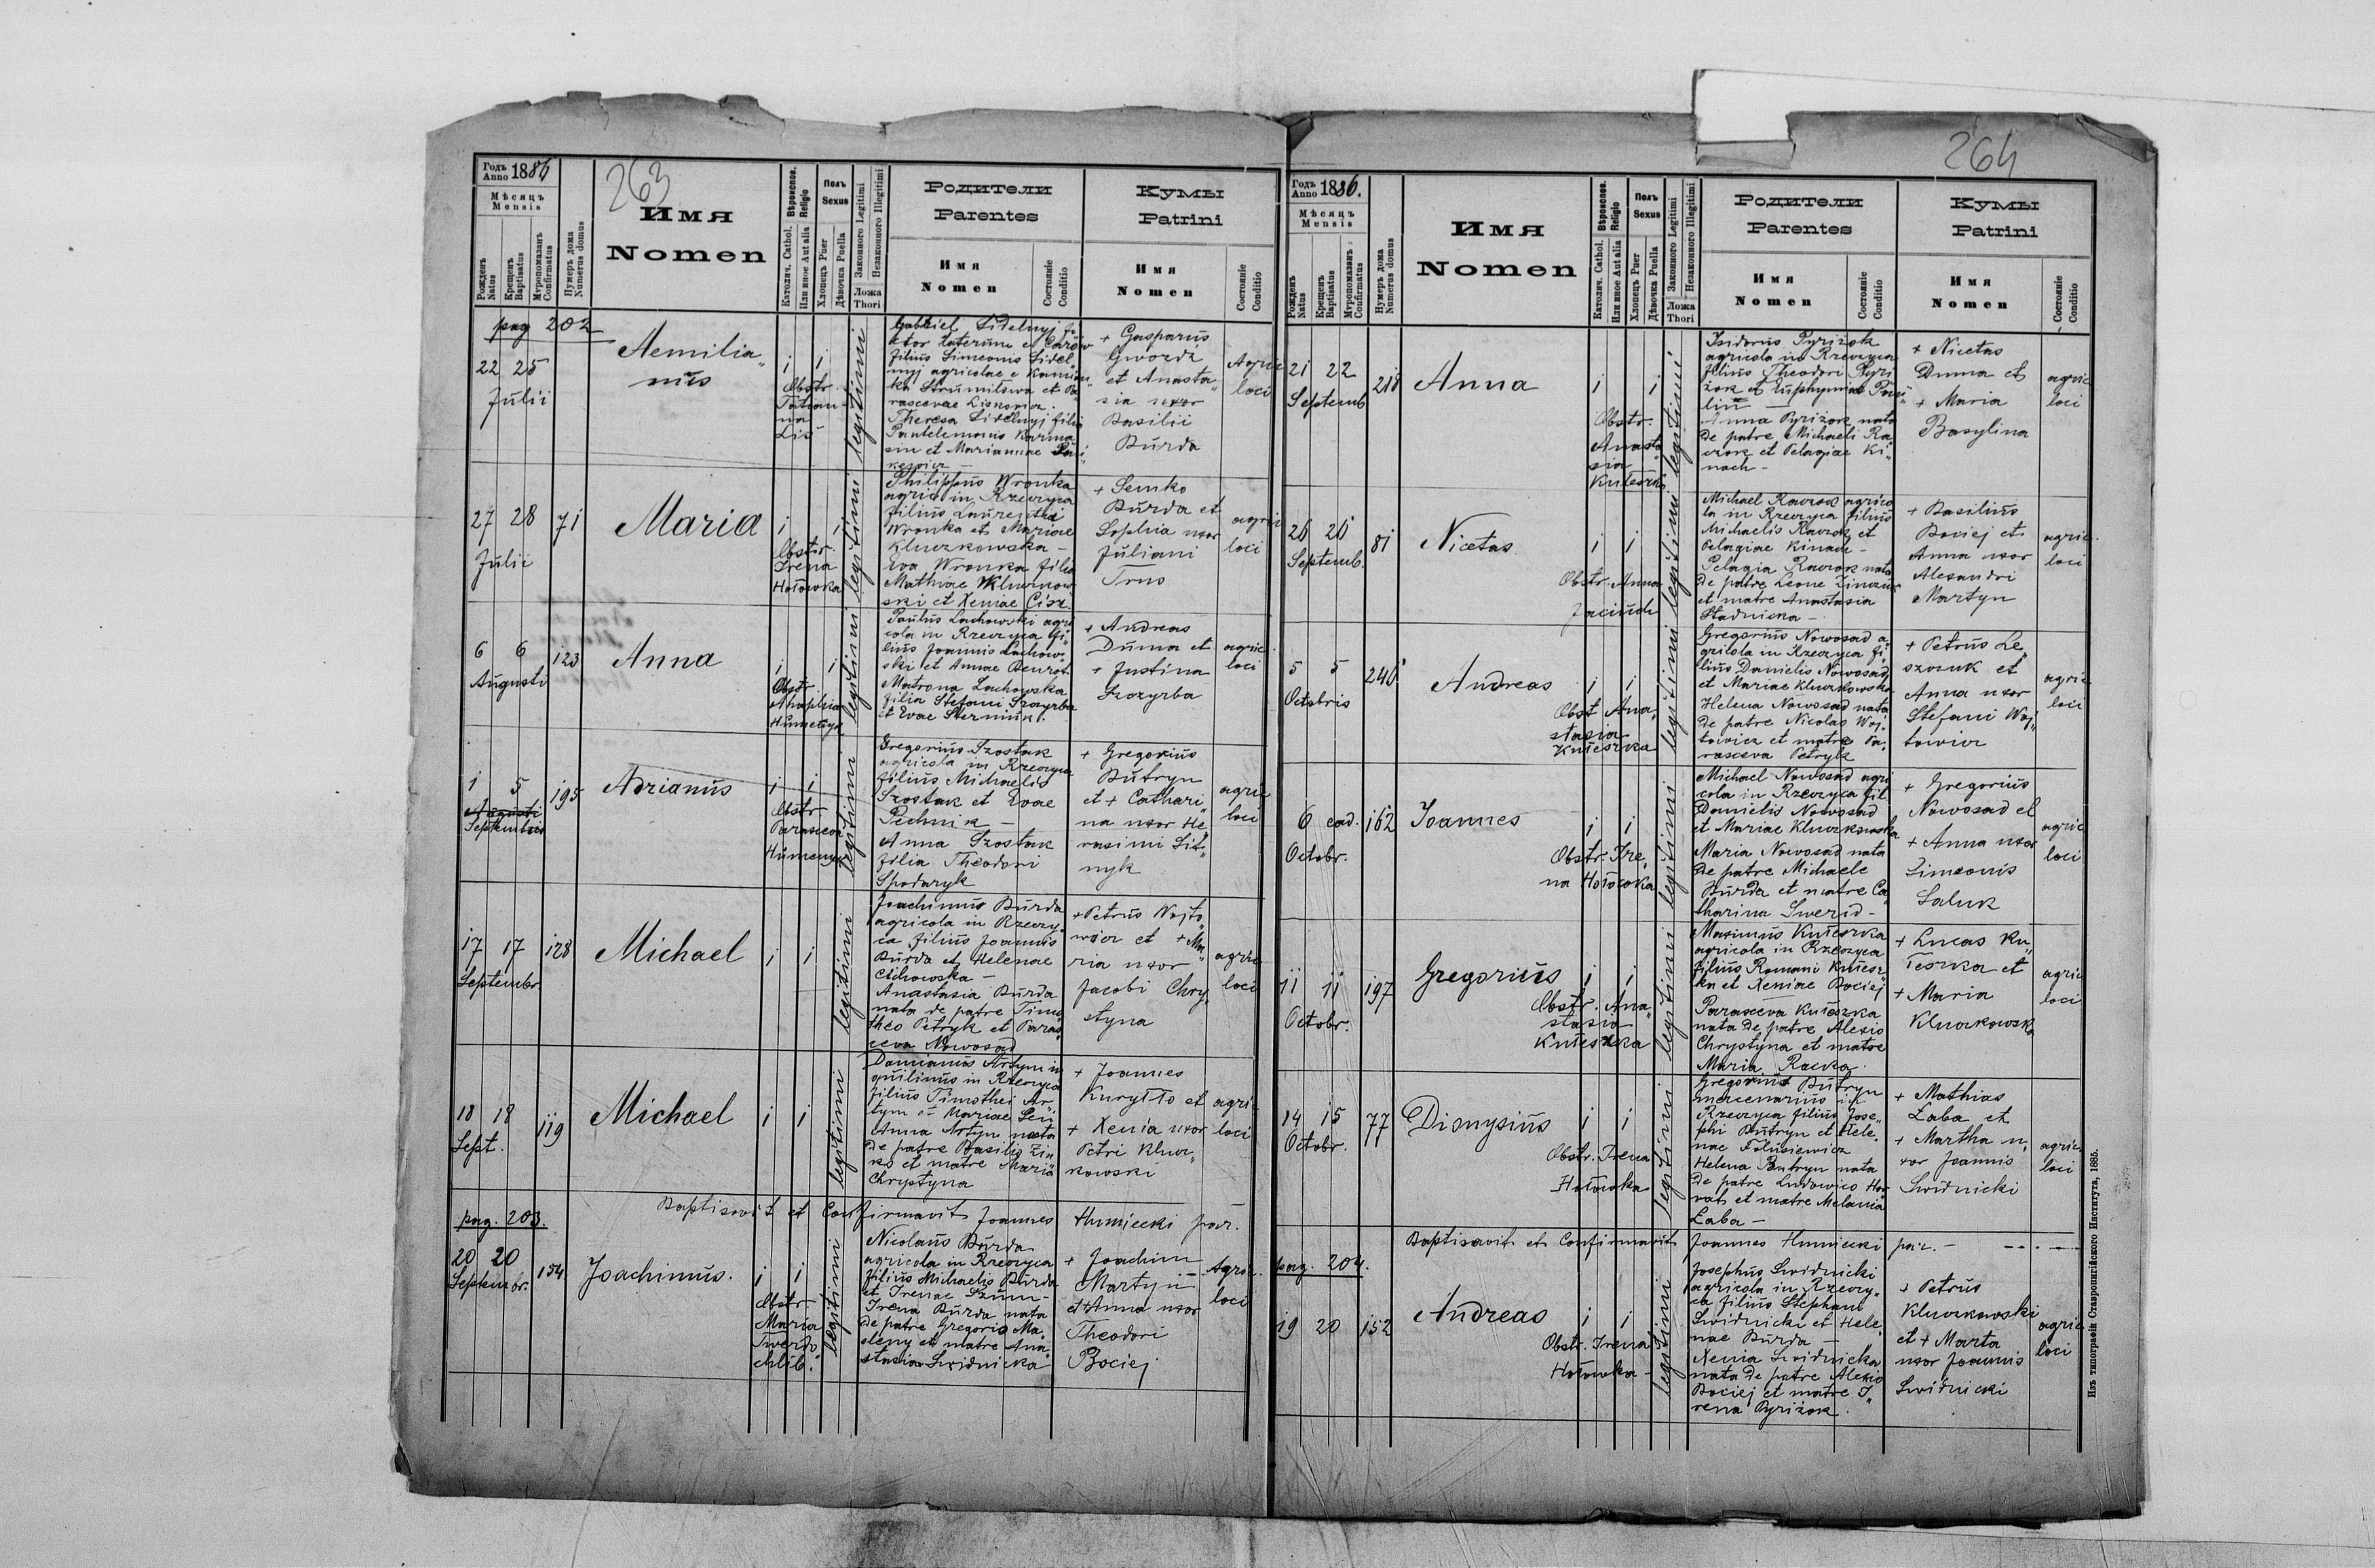 263
Годъ
Anno 1886
Мѣсяцъ
Mensis
Рожденъ
Natus
Крещенъ
Baptisatus
Мѵропомазанъ
Confirmatus
Нумеръ дома
Numerus domus
Имя
Nomen
Вѣроиспов.
Religio
Католич. Cathol.
Или иное Aut alia
Полъ
Sexus
Хлопецъ Puer
Дѣвочка Puella
Законного Legitimi
Незаконного Illegitimi
Ложа
Thori
Родители
Parentes
Имя
Nomen
Состояніе
Conditio
Кумы
Patrini
Имя
Nomen
Состояніе
Conditio
pag 202
22 25
Julii
Aemilia„
nus
i i
Obstr.
Tatian„
na
Lis
legitimi
Gabriel Sidelnyj fi„
ctor laterum et
filius Simeonis Sidel„
nyj agricolae e Kamion„
ka Strumiłowa et Pa„
rascevae
Theresa Sidelnyj filia
Pantelemonis
et Mariannae
+ Gasparus
Gwozdz
et Anasta„
sia uxor
Basilii
Burda
Agric
loci
27 28 71
Julii
Maria
i i
Obstr.
Irena
Hołowka
legitimi
Philippus Wronka
agric in Rzeczyca
filius Laurentii
Wronka et Mariae
Kluczkowska –
Eva Wronka filia
Mathiae Kluczkow
ski et Xeniae Cisz
+ Semko
Burda et
Sophia uxor
Juliani
Trus
agric
loci
6 6 123
Augusti
Anna
i i
Obstr.
Ahaphia
Humenya
legitimi
Paulus Lachowski agri
cola in Rzeczyca fi„
lius Joannis Lachow„
ski et Annae
Matrona Lachowska
filia Stefani Szczyrba
et Evae
+ Andreas
Duma et
+ Justina
Szczyrba
agric
loci
1 5 195
Augusti
Septembris
Adrianus
i i
Obstr.
Parasceva
Humenya
legitimi
Gregorius Szostak
agricola in Rzeczyca
filius Michaelis
Szostak et Evae
Pechnik –
Anna Szostak
filia Theodori
Spodaryk
+ Gregorius
Butryn
et + Cathari„
na uxor He„
rasimi Sit„
nyk
agric
loci
17 17 128
Septembr.
Michael
i i
legitimi
Joachimus Burda
agricola in Rzeczy„
ca filius Joannis
Burda et Helenae
Cichowska –
Anastasia Burda
nata de patre Timo
theo Petryk et Paras„
ceva Nowosad
+ Petrus Wojto„
wicz et + Ma„
ria uxor
Jacobi Chry„
styna
agric
loci
18 18 119
Sept.
Michael
i i
legitimi
Damianus Artym in
quilinus in Rzeczyca
filius Timothei Ar„
tym et Mariae
Anna Artym nata
de patre Basilio Zin
ko et matre Maria
Chrystyna
+ Joannes
Kuryłło et
+ Xenia uxor
Petri Klucz„
kowski
agri
loci
Baptisavit et Confirmavit Joannes Humiecki par.
pag. 203.
20 20 154
Septembr.
Joachimus.
i i
Obstr.
Maria
Twerdo
chlib.
legitimi
Nicolaus Burda
agricola in Rzeczyca
filius Michaelis Burda
et Irenae Szum –
Irena Burda nata
de patre Gregorio Ma„
sleny et matre Ana„
stasia Swidnicka
+ Joachim
Martyn
et + Anna uxor
Theodori
Bociej
Agric.
loci
264
Годъ
Anno 1886.
Мѣсяцъ
Mensis
Рожденъ
Natus
Крещенъ
Baptisatus
Мѵропомазанъ
Confirmatus
Нумеръ дома
Numerus domus
Имя
Nomen
Вѣроиспов.
Religio
Католич. Cathol.
Или иное Aut alia
Полъ
Sexus
Хлопецъ Puer
Дѣвочка Puella
Законного Legitimi
Незаконного Illegitimi
Ложа
Thori
Родители
Parentes
Имя
Nomen
Состояніе
Conditio
Кумы
Patrini
Имя
Nomen
Состояніе
Conditio
21 22 218
Septemb
Anna
i i
Obstr.
Anasta„
sia
Kułeszka
legitimi
Isidorus Pyrizok
agricola in Rzeczyca
filius Theodori Pyri
zok et Euphymiae
Anna Pyrizok nata
de patre Michaeli Ra„
czok et Pelagiae Ki„
nach –
+ Nicetas
Duma et
+ Maria
Basylina
agric
loci
26 26 81
Septemb.
Nicetas
i i
Obstr. Anna
Jaciuch
legitimi
Michael Raczok agrico
la in Rzeczyca filius
Michaelis Raczok et
Pelagiae Kinach –
Pelagia Raczok nata
de patre Leone
et matre Anastasia
Stadnicka –
+ Basilius
Bociej et
Anna uxor
Alexandri
Martyn
agric.
loci
5 5 246
Octobris
Andreas
i i
Obst. Ana„
stasia
Kułeszka
legitimi
Gregorius Nowosad a„
gricola in Rzeczyca fi„
lius Danielis Nowosad
et Mariae Kluczkowska
Helena Nowosad nata
de patre Nicolao Woj„
towicz et matre Pa„
rasceva Petryk
+ Petrus Le„
szczuk et
Anna uxor
Stefani Woj„
towicz
agric
loci
6 ead. 162
Octobr.
Joannes
i i
Obstr. Ire„
na Hołowka
legitimi
Michael Nowosad agri
cola in Rzeczyca fil.
Danielis Nowosad
et Mariae Kluczkowska
Maria Nowosad nata
de patre Michaele
Burda et matre Ca„
tharina Swerid –
+ Gregorius
Nowosad et
+ Anna uxor
Simeonis
Saluk
agric
loci
11 11 197
Octobr.
Gregorius
i i
Obstr. Ana„
stasia
Kułeszka
legitimi
Maximus Kułeszka
agricola in Rzeczyca
filius Romani Kułesz
ka et Xeniae Bociej
Parasceva Kułeszka
nata de patre Alexio
Chrystyna et matre
Maria Racka.
+ Lucas Ku„
łeszka et
+ Maria
Kluczkowska
agric
loci
14 15 77
Octobr.
Dionysius
i i
Obstr. Irena
Hołowka
legitimi
Gregorius Butryn
mercenarius in
Rzeczyca filius Jose„
phi Butryn et Hele„
nae Folusiewicz
Helena Butryn nata
de patre Ludovico Hor
vat et matre Melania
Łaba –
+ Mathias
Łaba et
+ Martha u„
xor Joannis
Swidnicki
agric
loci
Baptisavit et Confirmavit Joannes Humiecki par. –
pag. 204.
19 20 152
Andreas
i i
Obstr. Irena
Hołowka –
legitimi
Josephus Swidnicki
agricola in Rzeczy„
ca filius Stephani
Swidnicki et Hele„
nae Burda –
Xenia Swidnicka
nata de patre Alexio
Bociej et matre I„
rena Pyrizok.
+ Petrus
Kluczkowski
et + Marta
uxor Joannis
Swidnicki
agric
loci
Изъ типографіи Ставропигійского Института, 1885.